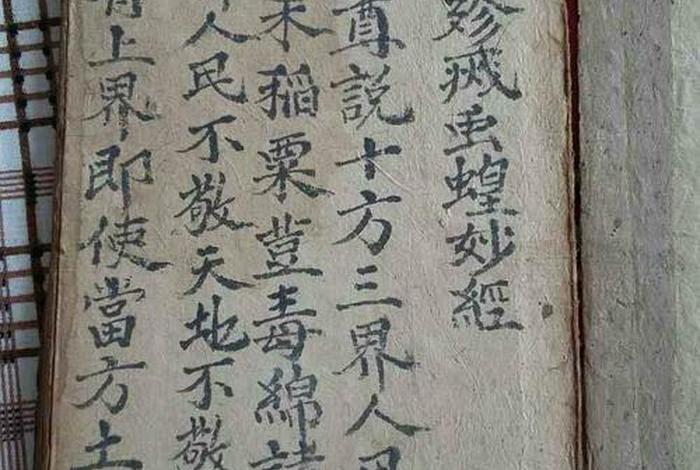 殄滅虫蝗妙經
尊説十方三界人
禾稲粟荳毒綿
人民不敬天地不敬
上界即使當方土